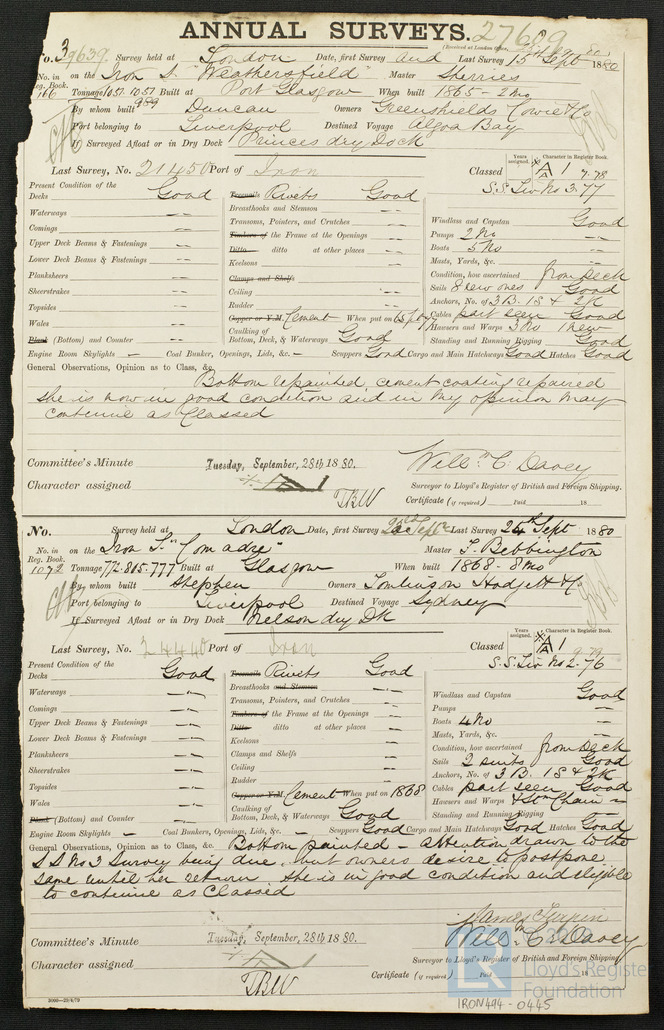 ANNUAL SURVEYS. 27689
(Received at London Office,
No. 39639. Survey held at London Date, first Survey and Last Survey 15th Sept 1880
No. in Reg. Book. on the Iron S. "Weathersfield" Master Sherries
166 Tonnage 1051. 1051 Built at Port Glasgow When built 1865 - 2 mo
989 By whom built Duncan Owners Greenshields Cowie & Co
Port belonging to Liverpool Destined Voyage Algoa Bay
If Surveyed Afloat or in Dry Dock Princes dry Dock
Last Survey, No. 21450 Port of Iron Classed Years assigned. Character in Register Book. A 1 7.78
S.S. Liv No 3. 77
Present Condition of the
Decks Good Treenails Rivets Good
Waterways -- Breasthooks and Stemson --
Comings -- Transoms, Pointers, and Crutches -- Windlass and Capstan Good
Upper Deck Beams & Fastenings -- Timbers of the Frame at the Openings -- Pumps 2 No --
Lower Deck Beams & Fastenings -- Ditto ditto at other places -- Boats 5 No --
Planksheers -- Keelsons -- Masts, Yards, &c. --
Sheerstrakes -- Clamps and Shelfs Condition, how ascertained from Deck
Topsides -- Ceiling -- Sails 8 new ones Good
Wales -- Rudder -- Anchors, No. of 3 B. 1 S & 2 K
Plank (Bottom) and Counter -- Copper or Y.M. Cement When put on Cables part seen Good
Caulking of Bottom, Deck, & Waterways Good Hawsers and Warps 3 No 1 new
Standing and Running Rigging Good
Engine Room Skylights - Coal Bunker, Openings, Lids, &c. - Scuppers Good Cargo and Main Hatchways Good Hatches Good
General Observations, Opinion as to Class, &c. Bottom repainted, cement coating repaired
she is now in good condition and in my opinion may
continue as Classed
Committee's Minute Tuesday, September, 28th 1880. Willm. C. Davey
Character assigned A 1 Surveyor to Lloyd's Register of British and Foreign Shipping.
TBW Certificate (if required) Paid 18
No. Survey held at London Date, first Survey 22nd Sept Last Survey 24th Sept 1880
No. in Reg. Book. on the Iron S. "Comadre" Master T. Bebbington
1072 Tonnage 772-805-777 Built at Glasgow When built 1868 - 8 mo
By whom built Stephen Owners Tomlinson Hodgett & Co.
Port belonging to Liverpool Destined Voyage Sydney
If Surveyed Afloat or in Dry Dock Nelson dry Dk
Last Survey, No. 24440 Port of Iron Classed Years assigned. Character in Register Book. A 1 9.79
S.S. Liv No 2. 76
Present Condition of the
Decks Good Treenails Rivets Good
Waterways -- Breasthooks and Stemson --
Comings -- Transoms, Pointers, and Crutches -- Windlass and Capstan Good
Upper Deck Beams & Fastenings -- Timbers of the Frame at the Openings -- Pumps --
Lower Deck Beams & Fastenings -- Ditto ditto at other places -- Boats 4 No --
Planksheers -- Keelsons -- Masts, Yards, &c. --
Sheerstrakes -- Clamps and Shelfs -- Condition, how ascertained from Deck
Topsides -- Ceiling -- Sails 2 suits Good
Wales -- Rudder -- Anchors, No. of 3 B. 1 S & 2 K
Plank (Bottom) and Counter -- Copper or Y.M. Cement When put on 1868 Cables part seen Good
Caulking of Bottom, Deck, & Waterways Good Hawsers and Warps & Stm Chain --
Standing and Running Rigging --
Engine Room Skylights - Coal Bunkers, Openings, Lids, &c. - Scuppers Good Cargo and Main Hatchways Good Hatches Good
General Observations, Opinion as to Class, &c. Bottom painted - attention drawn to the
S S No 3 Survey being due, but owners desire to postpone
same until her return she is in good condition and eligible
to continue as Classed
James Turpin
Committee's Minute Tuesday, September, 28th 1880. Willm. C. Davey
Character assigned Surveyor to Lloyd's Register of British and Foreign Shipping.
TBW Certificate (if required) Paid 18
LR
Lloyd's Register
Foundation
IRON494-0445